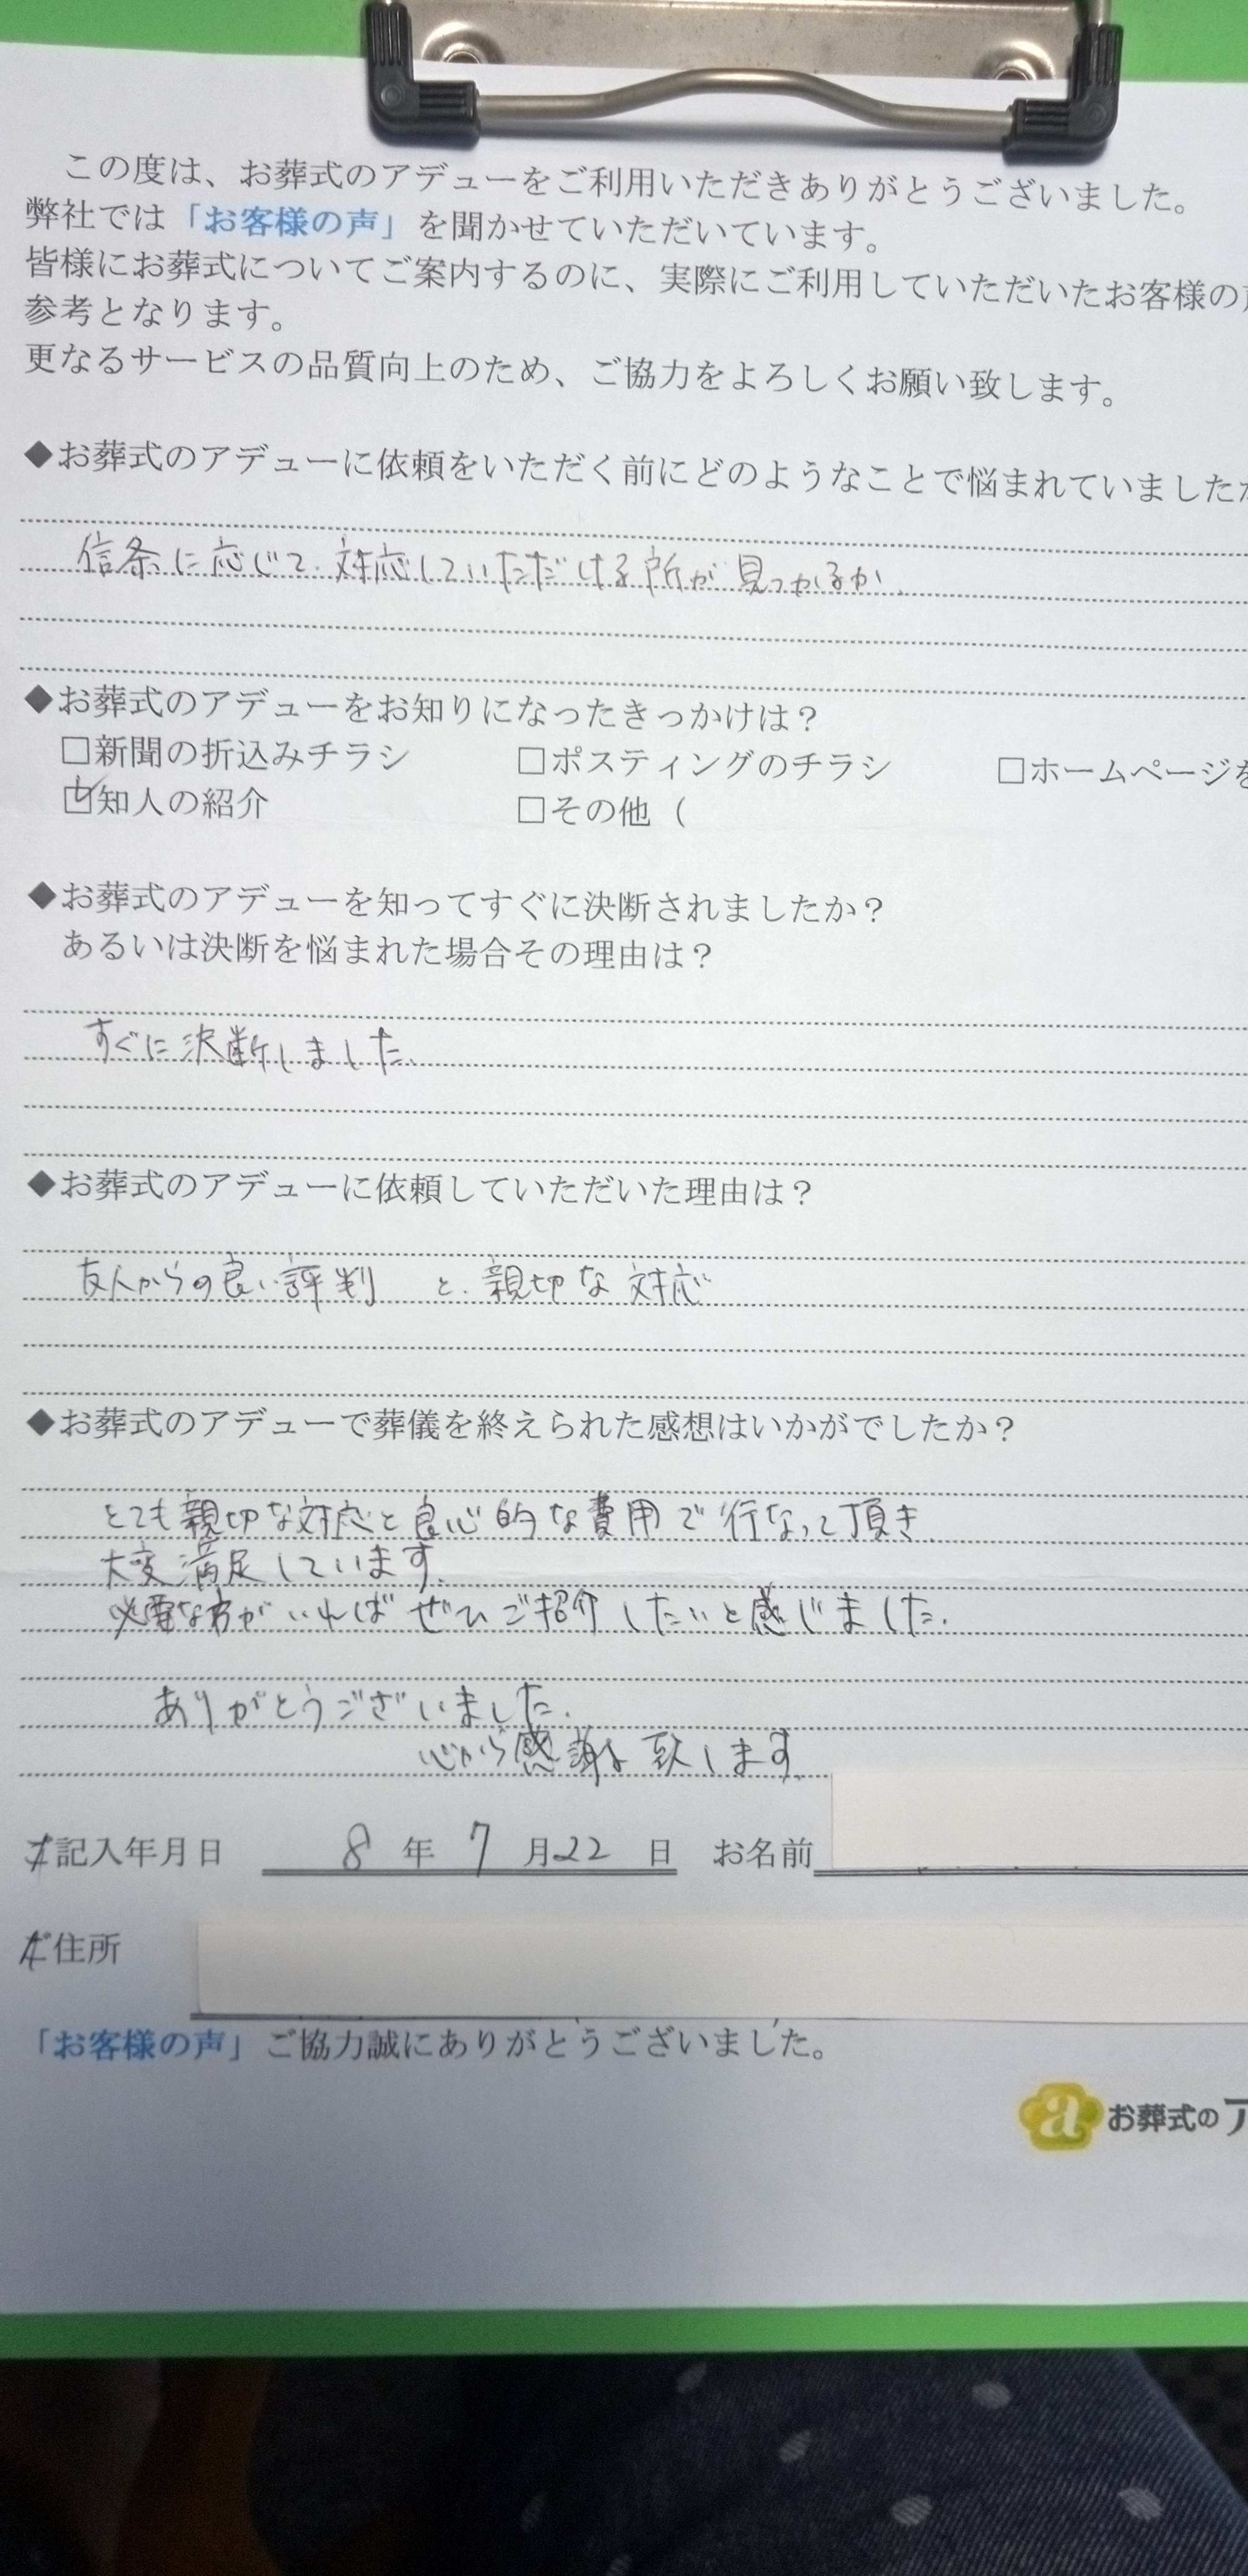 この度は、お葬式のアデューをご利用いただきありがとうございました。
弊社では「お客様の声」を聞かせていただいています。
皆様にお葬式についてご案内するのに、実際にご利用していただいたお客様の
参考となります。
更なるサービスの品質向上のため、ご協力をよろしくお願い致します。
◆お葬式のアデューに依頼をいただく前にどのようなことで悩まれていました
信条に応じて、対応していただける所が見つかるか、
◆お葬式のアデューをお知りになったきっかけは？
□新聞の折込みチラシ □ポスティングのチラシ □ホームページを
☑知人の紹介 □その他（
◆お葬式のアデューを知ってすぐに決断されましたか？
あるいは決断を悩まれた場合その理由は？
すぐに決断しました、
◆お葬式のアデューに依頼していただいた理由は？
友人からの良い評判 と、親切な対応
◆お葬式のアデューで葬儀を終えられた感想はいかがでしたか？
とても親切な対応と良心的な費用で行なって頂き、
大変満足しています。
必要な方がいればぜひご紹介したいと感じました。
ありがとうございました。
心から感謝を致します。
記入年月日 8年7月22日 お名前
住所
「お客様の声」ご協力誠にありがとうございました。
a お葬式のア